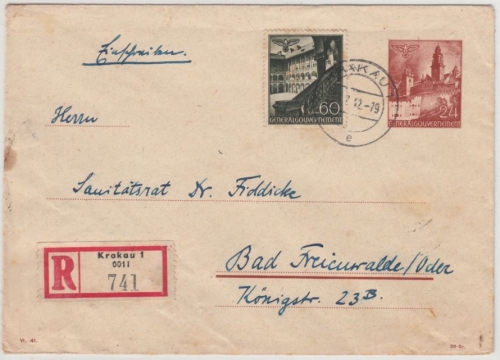 Einschreiben.
60
GENERALGOUVERNEMENT
KRAKAU
42.-19
e
24
GENERALGOUVERNEMENT
Herrn
Sanitätsrat Dr. Fiddicke
R
Krakau 1
0011
741
Bad Freienwalde/Oder
Königstr. 23B.